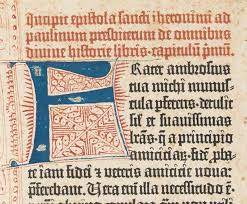 Incipit epistola sancti iheronimi ad
paulinum presbiterum de omnibus
divine historie libris · capitulũ pmũ.
Frater ambrosius
tua michi munus-
cula pferens · detulit
sil̃ et suavissimas
lr̃as · q̃ a principio
amiciciar̃ · fidẽ pba-
te iam fidei et veteris amicicie nova
pferebant · Vera enĩ illa necessitudo ẽ